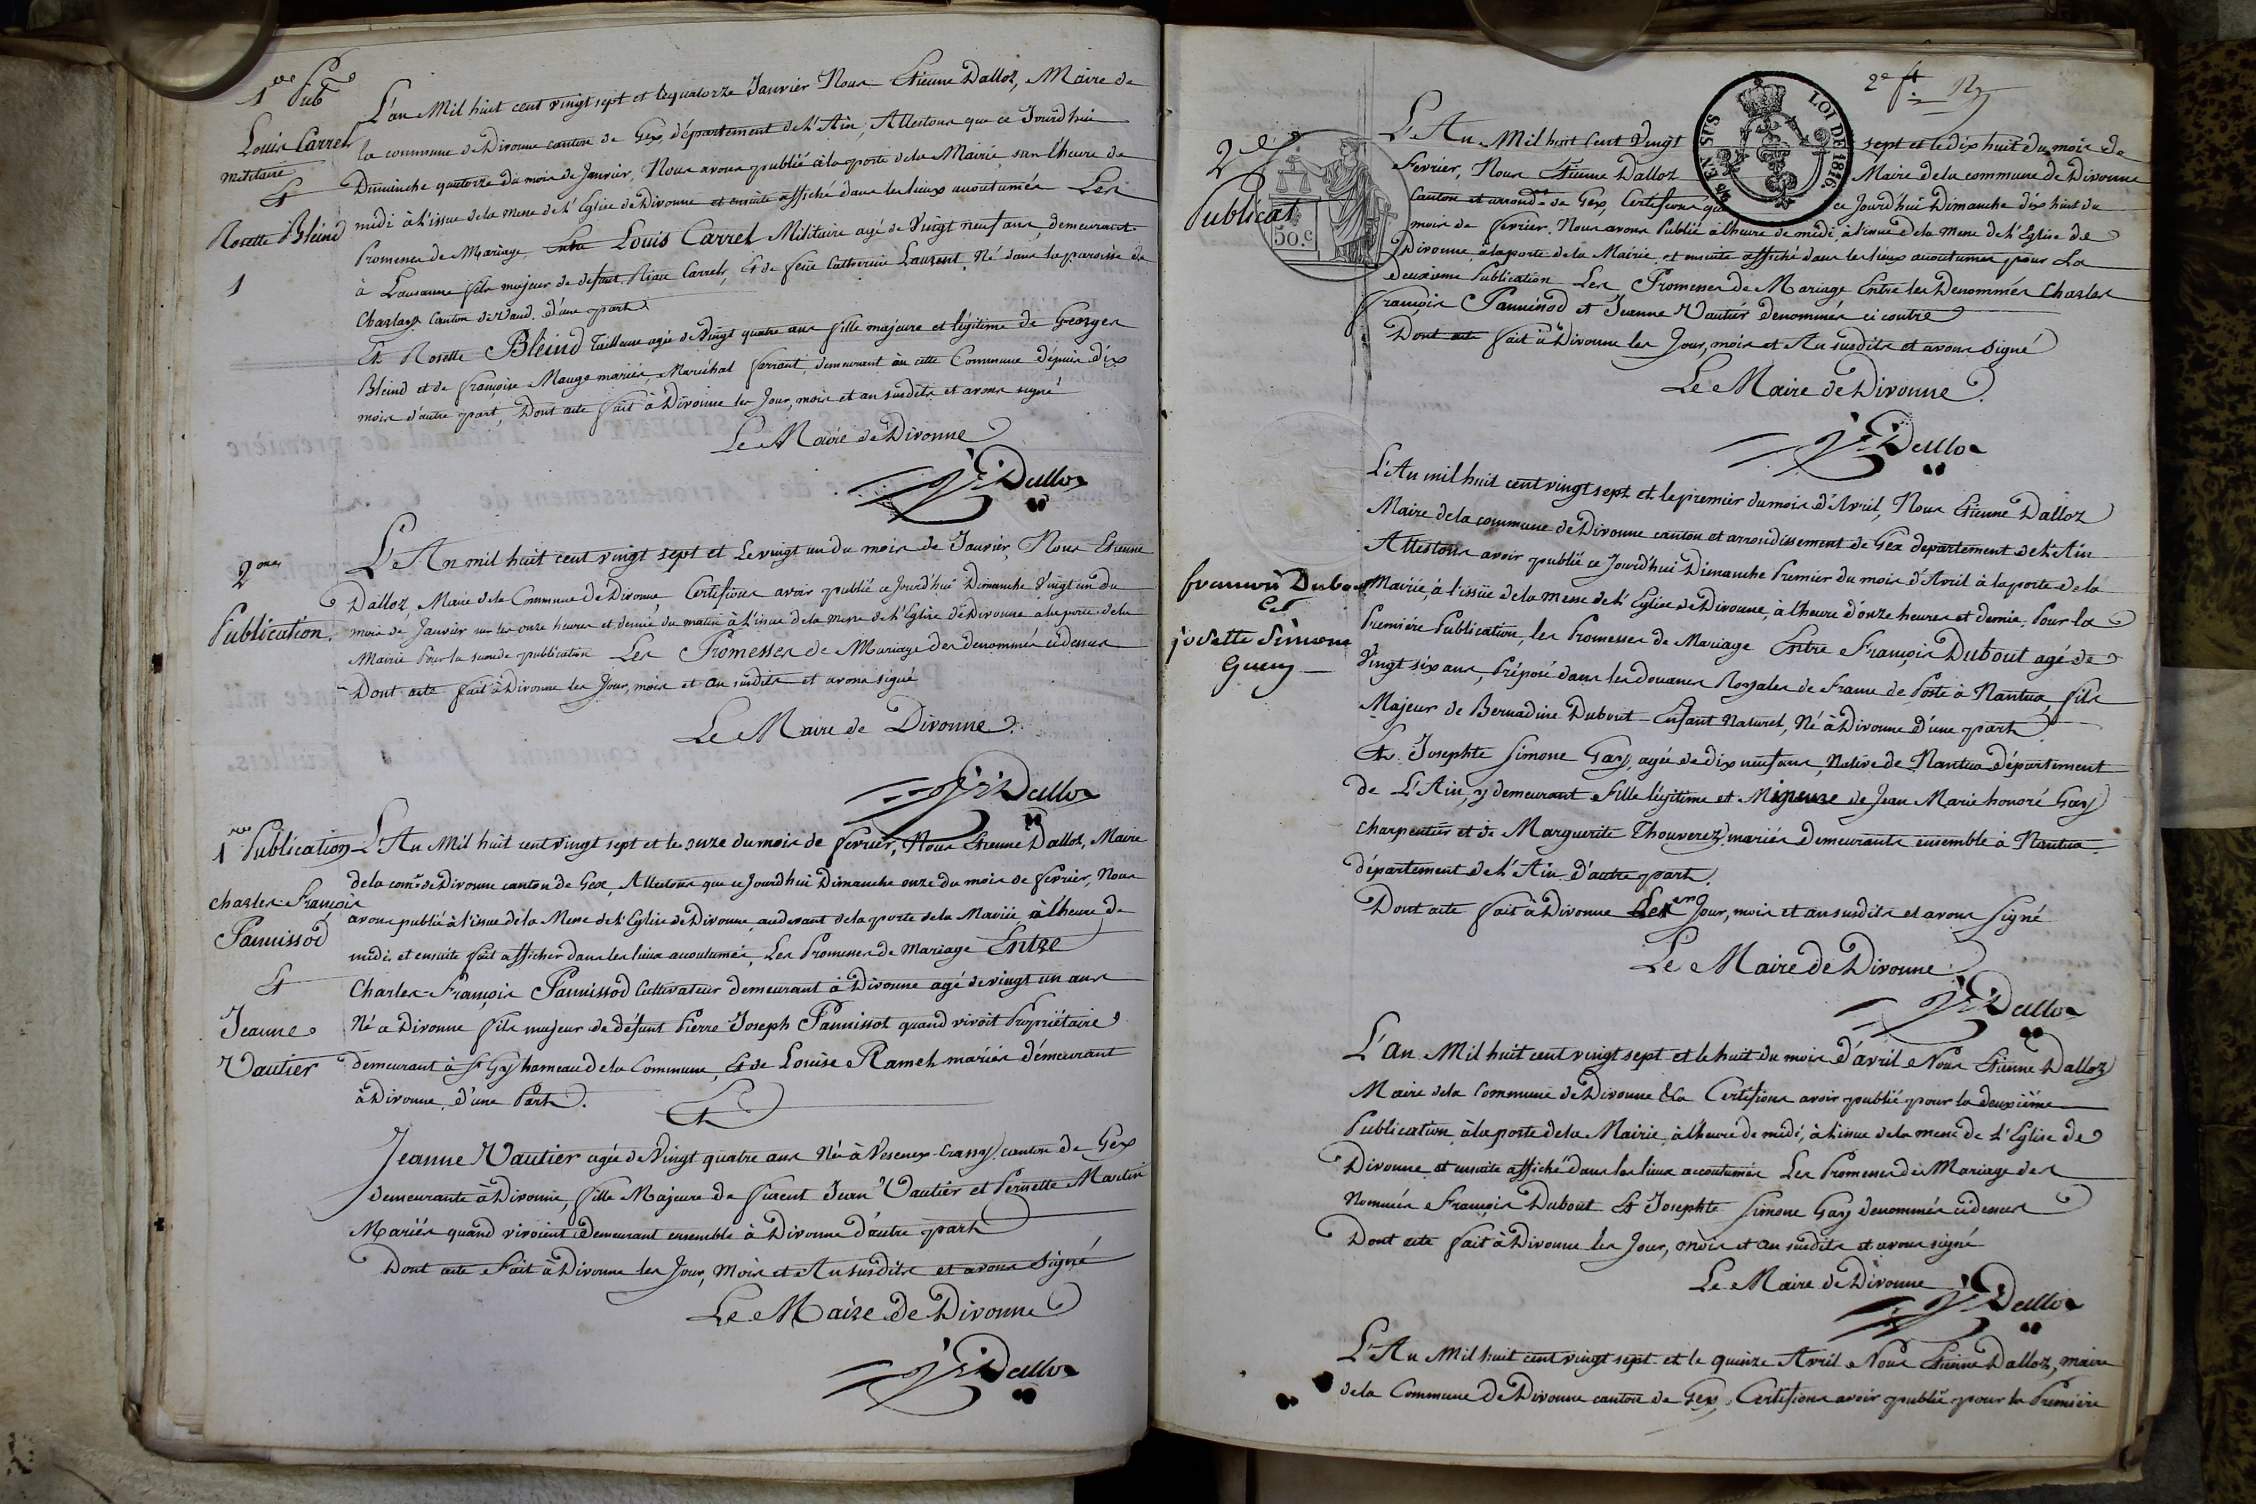 1ere Pubon
Louis Carrel
militaire
Et
Rosette Bleind
1
L'an Mil huit cent vingt sept et le quatorze Janvier Nous Etienne Dalloz, Maire de
la commune de Divonne canton de Gex, département de l'Ain, Attestons que ce Jourd'hui
Dimanche quatorze du mois de Janvier, Nous avons publié à la porte de la Mairie, sur l'heure de
midi à l'issue de la messe de l'Eglise de Divonne et ensuite affiché dans les lieux accoutumés Les
Promesses de Mariage Entre Louis Carrel Militaire agé de Vingt neuf ans, demeurant
à Lausanne fils majeur de défunt Carrel, Et de feue Catherine Laurent, Né dans la paroisse de
canton de Vaud. d'une part
Et Rosette Bleind Tailleuse agée de Vingt quatre ans fille majeure et légitime de Georges
Bleind et de Françoise Mauge mariés, Maréchal ferrant, demeurant en cette Commune dépuis dix
mois d'autre part, Dont acte fait à Divonne les Jour, mois et an susdits et avons signé
Le Maire de Divonne
Dalloz
2ème
Publication.
L'An mil huit cent vingt sept et Le vingt un du mois de Janvier, Nous Etienne
Dalloz, Maire de la Commune de Divonne Certifions avoir publié ce Jourd'hui Dimanche Vingt un du
mois de Janvier sur les onze heures et demie du matin à l'issue de la messe de l'Eglise de Divonne à la porte de la
Mairie Pour la seconde publication Les Promesses de Mariage des denommés ci dessus
Dont acte fait à Divonne les Jour, mois et an susdits et avons signé
Le Maire de Divonne.
Dalloz
1ere Publication
Charles François
Pannissod
Et
Jeanne
Vautier
L'An Mil huit cent vingt sept et le onze du mois de fevrier, Nous Etienne Dalloz, Maire
de la come de Divonne canton de Gex, Attestons que ce Jourd'hui Dimanche onze du mois de fevrier, Nous
avons publié à l'issue de la Messe de l'Eglise de Divonne, au devant de la porte de la Mairie, à l'heure de
midi et ensuite fait afficher dans les lieux accoutumés, Les Promesses de Mariage Entre
Charles-François Pannissod Cultivateur demeurant à Divonne agé de vingt un ans
Né à Divonne fils majeur de défunt Pierre Joseph Pannissot quand vivoit Propriétaire
demeurant à St Gy hameau de la Commune, Et de Louise Ramel mariés démeurant
à Divonne, d'une Part.
Et
Jeanne Vautier agée de Vingt quatre ans Née à Vesenex-Crassy canton de Gex
demeurante à Divonne, fille Majeure de furent Jean Vautier et Pernette Martin
Mariés quand vivoient demeurant ensemble à Divonne d'autre part
Dont acte Fait à Divonne les Jour, Mois et An susdits et avons Signé
Le Maire de Divonne
Dalloz
2e ft
2e
Publicat
50.c
EN SUS
LOI DE 1816
L'An Mil huit Cent Vingt sept et le dix huit du mois de
Fevrier, Nous Etienne Dalloz Maire de la commune de Divonne
Canton et arrondt de Gex, Certifions que ce Jourd'hui Dimanche dix huit du
mois de fevrier, Nous avons Publié à l'heure de midi, à l'issue de la messe de l'Eglise de
Divonne à la porte de la Mairie, et ensuite affiché dans les lieux accoutumés pour La
deuxième Publication Les Promesses de Mariage Entre les Denommés Charles
François Pannissod et Jeanne Vautier denommés ci contre
Dont acte fait à Divonne les Jour, mois et An susdits et avons Signé
Le Maire de Divonne
Dalloz
francois Dubout
Et
josette Simone
Guey
L'An mil huit cent vingt sept et le premier du mois d'Avril, Nous Etienne Dalloz
Maire de la commune de Divonne canton et arrondissement de Gex departement de l'Ain
Attestons avoir publié ce Jourd'hui Dimanche Premier du mois d'Avril à la porte de la
Mairie, à l'issüe de la messe de l'Eglise de Divonne, à l'heure d'onze heures et demie, Pour la
Première Publication, les Promesses de Mariage Entre François Dubout agé de
Vingt six ans, Préposé dans les douanes Royales de France de Poste à Nantua, fils
Majeur de Bernadine Dubout Enfant Naturel, Né à Divonne d'une part
Et Josephte Simone Gay, agée de dix neuf ans, Native de Nantua département
de L'Ain, y demeurant Fille légitime et Mineure de Jean Marie honoré Gay
Charpentier et de Marguerite Thouverez mariés demeurants ensemble à Nantua
département de l'Ain d'autre part.
Dont acte fait à Divonne Les Jour, mois et an susdits et avons Signé
Le Maire de Divonne
Dalloz
L'an Mil huit cent vingt sept et le huit du mois d'avril Nous Etienne Dalloz
Maire de la Commune de Divonne &a Certifions avoir publié pour la deuxième
Publication, à la porte de la Mairie, à l'heure de midi, à l'issue de la messe de l'Eglise de
Divonne et ensuite affiché dans les lieux accoutumés Les Promesses de Mariage des
Nommés François Dubout Et Josephte Simone Gay denommés ci dessus
Dont acte fait à Divonne les Jour, mois et an susdits et avons signé
Le Maire de Divonne
Dalloz
L'An Mil huit cent vingt sept et le quinze Avril Nous Etienne Dalloz, maire
de la Commune De Divonne canton de Gex, Certifions avoir publié pour la Premiere